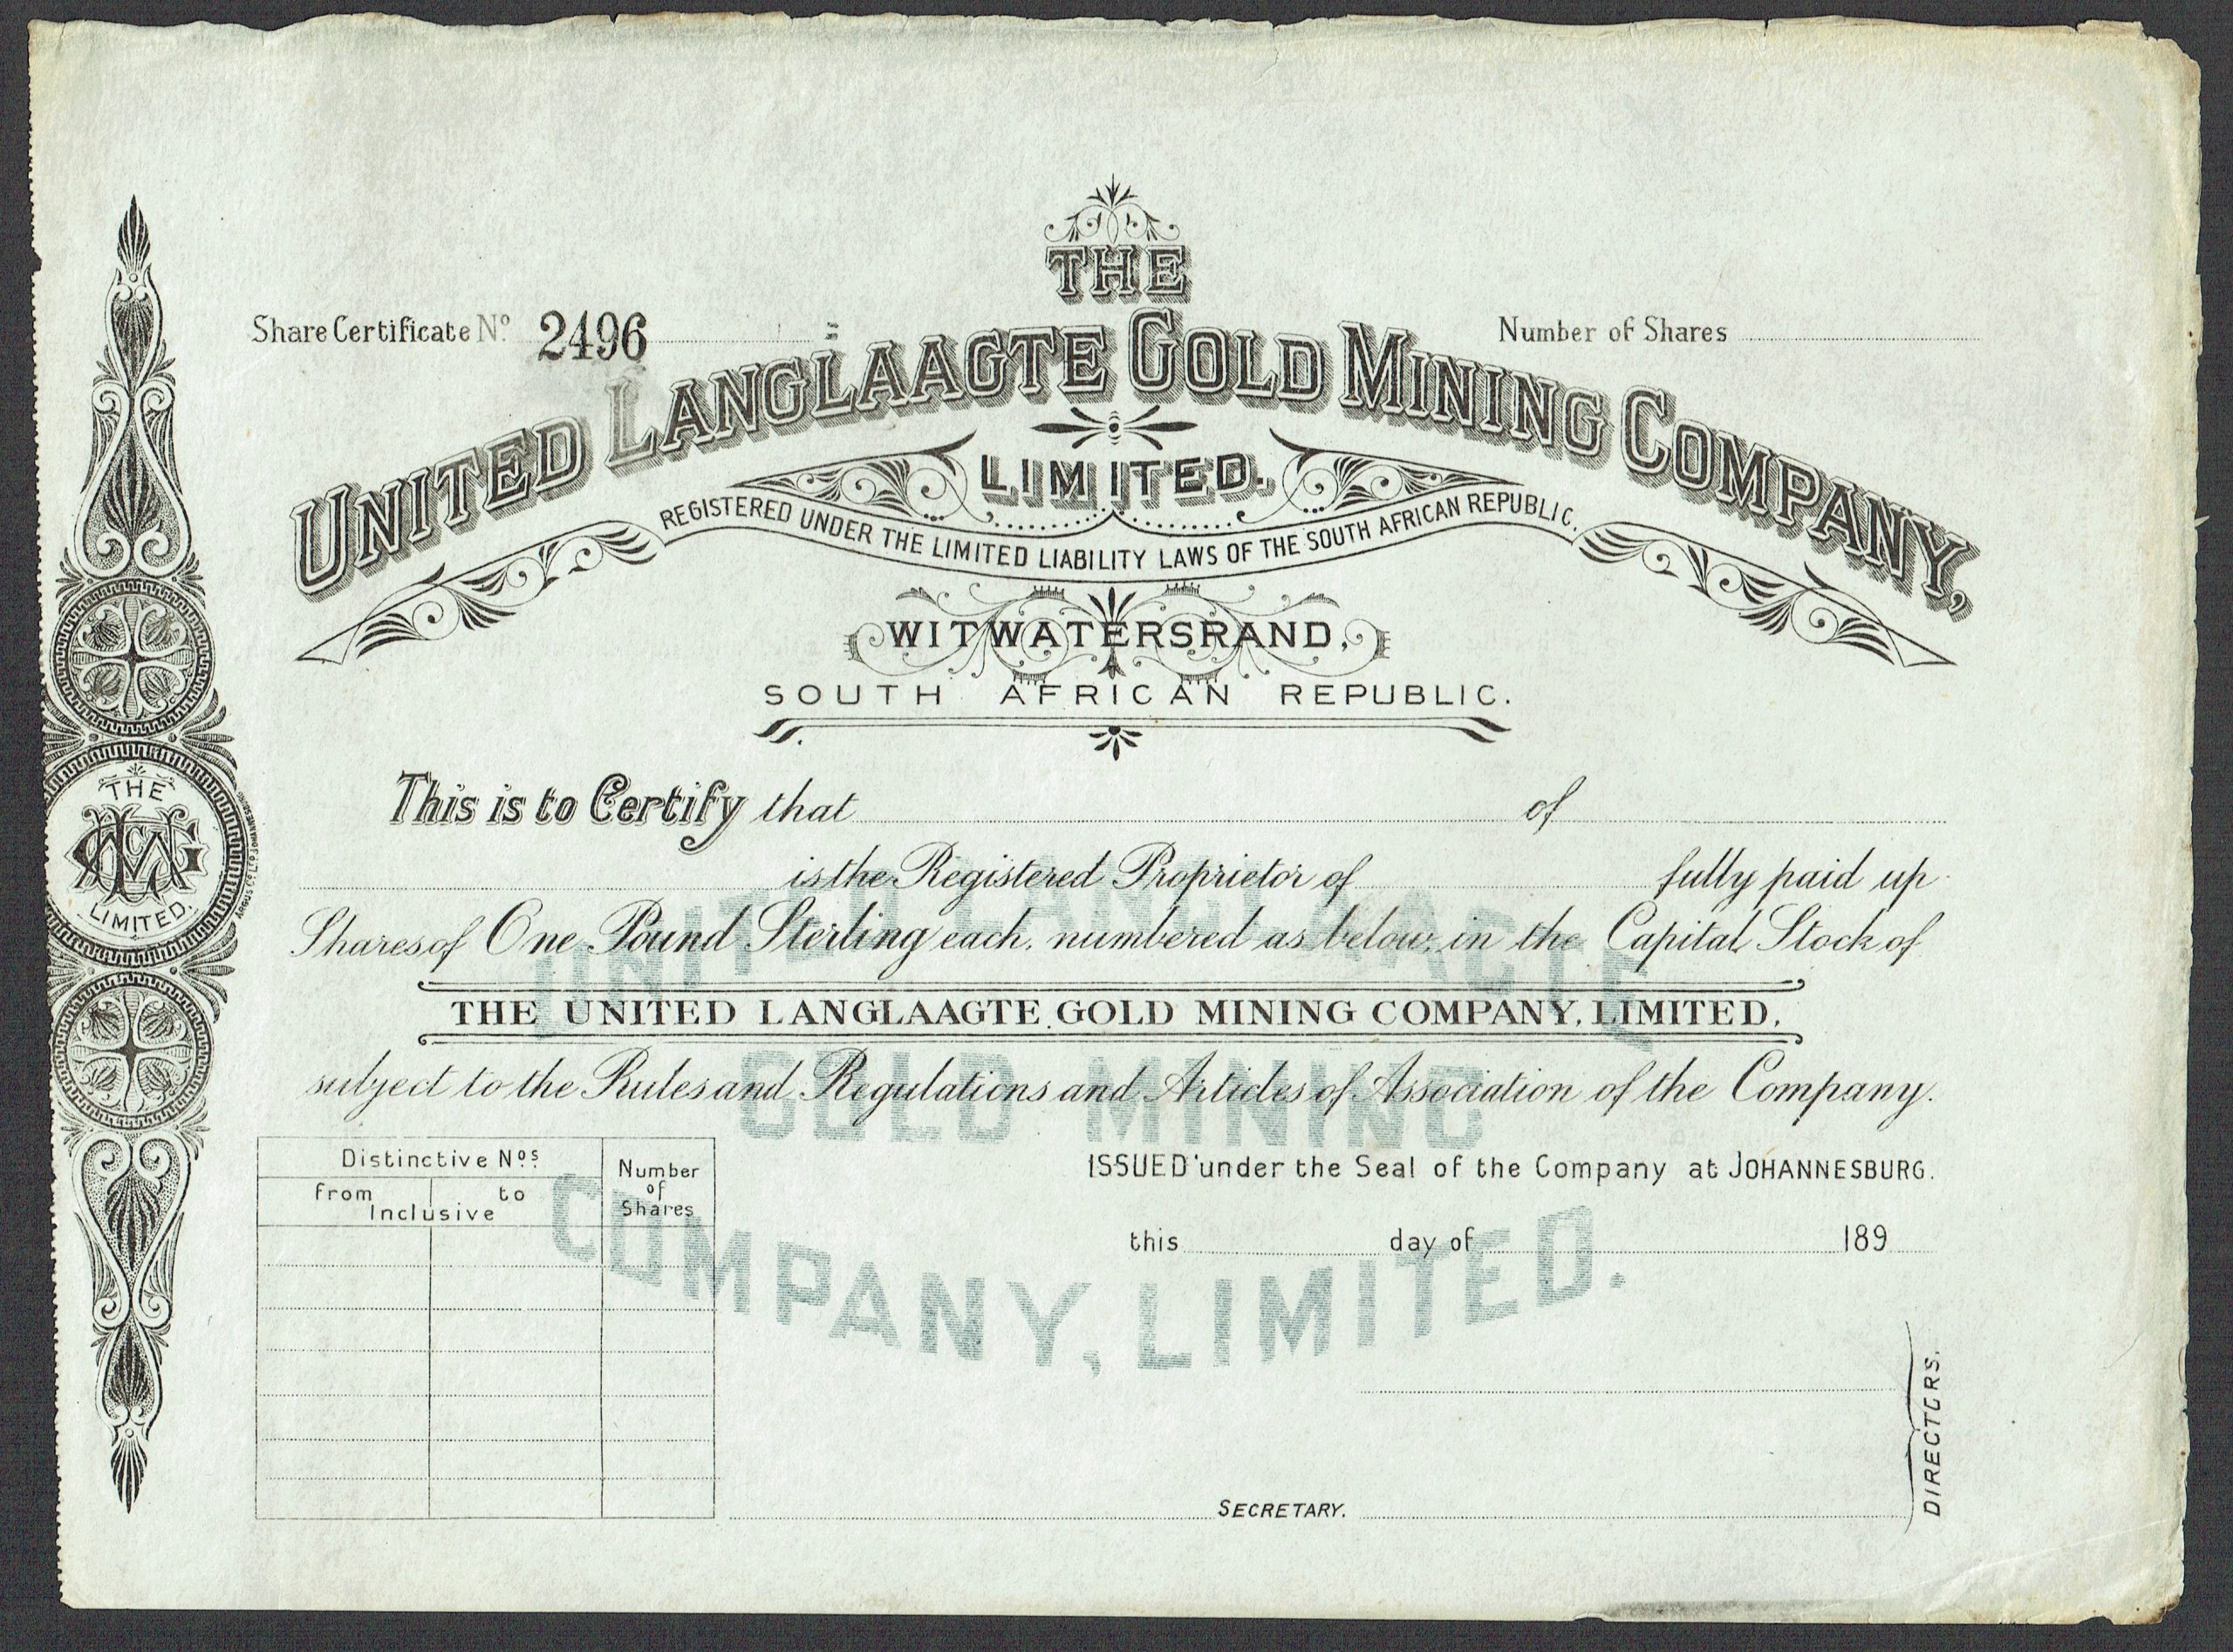 THE
Share Certificate Nº 2496
Number of Shares
UNITED LANGLAAGTE GOLD MINING COMPANY,
LIMITED.
REGISTERED UNDER THE LIMITED LIABILITY LAWS OF THE SOUTH AFRICAN REPUBLIC.
WITWATERSRAND,
SOUTH AFRICAN REPUBLIC.
THE
LIMITED.
This is to Certify that of
is the Registered Proprietor of fully paid up
Shares of One Pound Sterling each, numbered as below, in the Capital Stock of
THE UNITED LANGLAAGTE GOLD MINING COMPANY, LIMITED,
subject to the Rules and Regulations and Articles of Association of the Company.
UNITED LANGLAAGTE
GOLD MINING
COMPANY, LIMITED.
Distinctive Nos.
from to
Inclusive
Number
of
Shares
ISSUED under the Seal of the Company at JOHANNESBURG.
this day of 189
DIRECTORS.
SECRETARY.